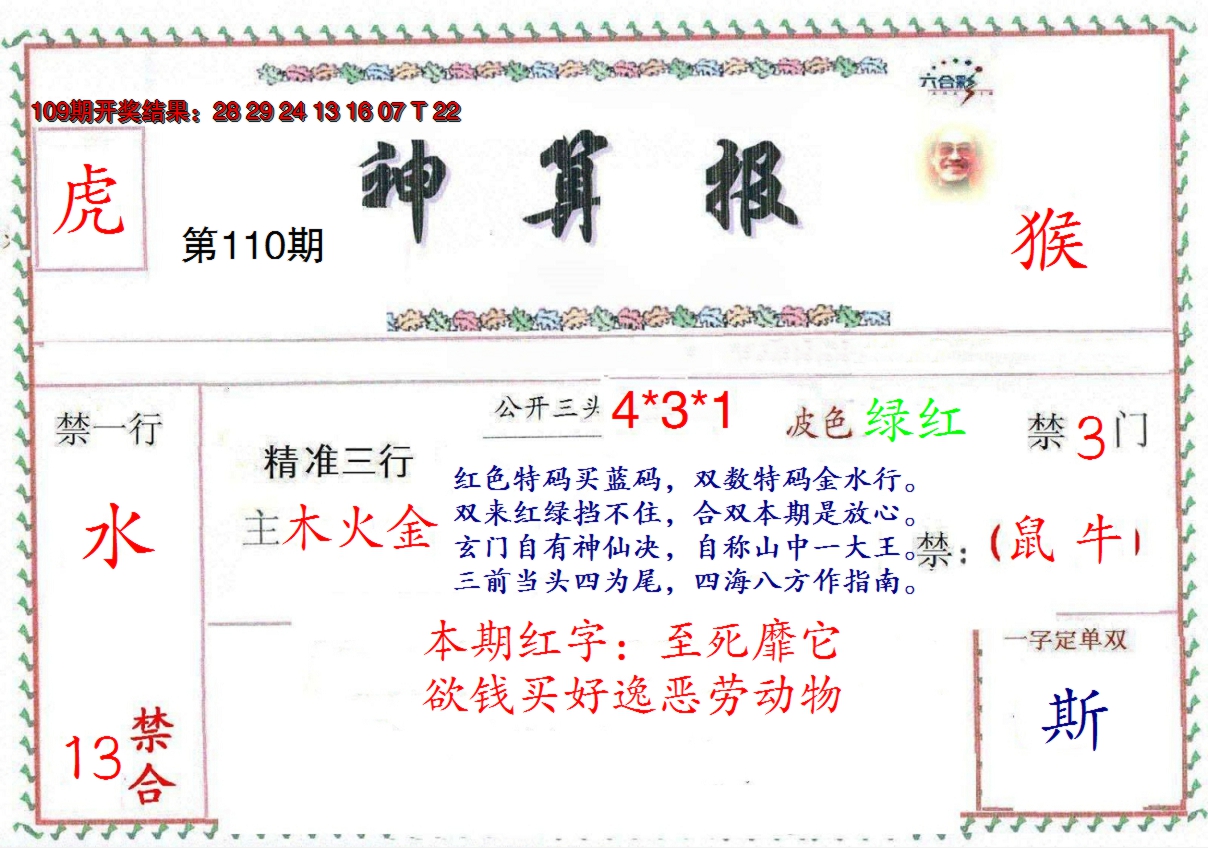 六合彩
109期开奖结果：28 29 24 13 16 07 T 22
神算报
虎
第110期
猴
禁一行
水
13
禁合
公开三头
4*3*1
波色 绿红
禁3门
精准三行
主木火金
红色特码买蓝码，双数特码金水行。
双来红绿挡不住，合双本期是放心。
玄门自有神仙决，自称山中一大王。
三前当头四为尾，四海八方作指南。
禁：（鼠 牛）
本期红字：至死靡它
欲钱买好逸恶劳动物
一字定单双
斯